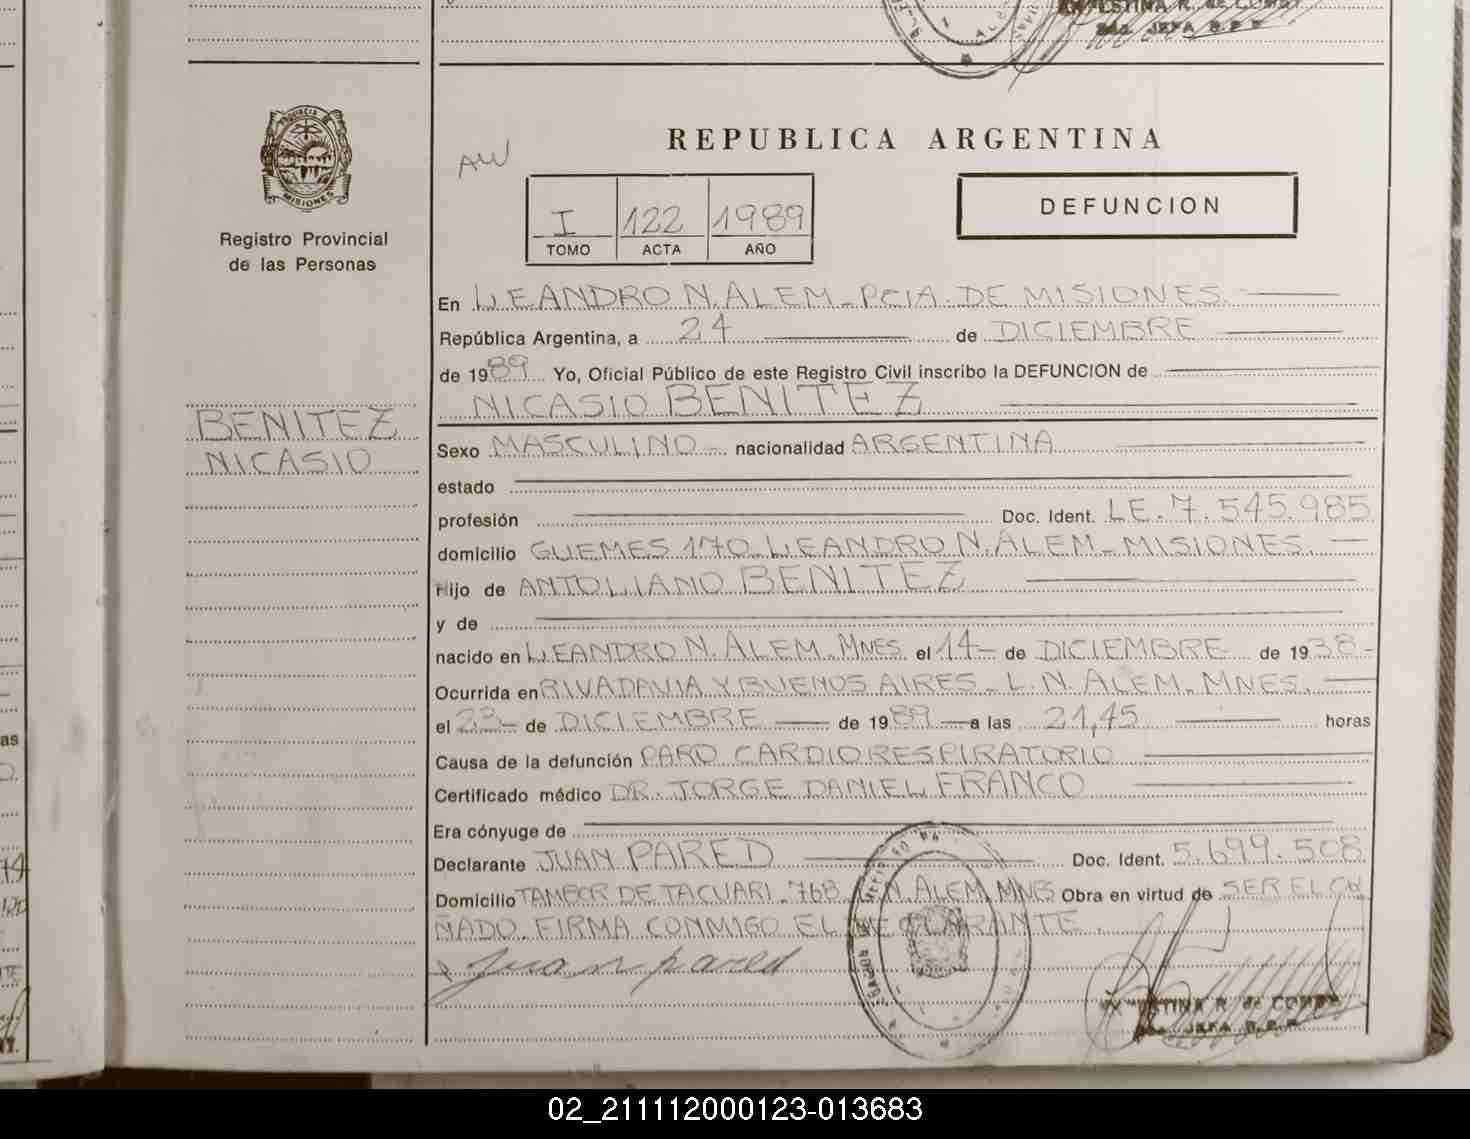 REPUBLICA ARGENTINA
DEFUNCION
AW
I 122 1989
TOMO ACTA AÑO
PROVINCIA
MISIONES
Registro Provincial
de las Personas
BENITEZ
NICASIO
En LEANDRO N. ALEM - PCIA. DE MISIONES.
República Argentina, a 24 de DICIEMBRE
de 1989 Yo, Oficial Público de este Registro Civil inscribo la DEFUNCION de
NICASIO BENITEZ
Sexo MASCULINO - nacionalidad ARGENTINA
estado
profesión Doc. Ident. LE. 7.545.985
domicilio GUEMES 170 LEANDRO N. ALEM - MISIONES.
Hijo de ANTOLIANO BENITEZ
y de
nacido en LEANDRO N. ALEM - MNES. el 14 - de DICIEMBRE de 1938 -
Ocurrida en RIVADAVIA Y BUENOS AIRES - L. N. ALEM - MNES.
el 23 - de DICIEMBRE de 1989 a las 21,45 horas
Causa de la defunción PARO CARDIORESPIRATORIO
Certificado médico DR. JORGE DANIEL FRANCO
Era cónyuge de
Declarante JUAN PARED Doc. Ident. 5.699.508
Domicilio TAMBOR DE TACUARI. 768 L. N. ALEM. MNES Obra en virtud de SER EL CU
ÑADO. FIRMA CONMIGO EL DECLARANTE.
Juan pared
02_211112000123-013683